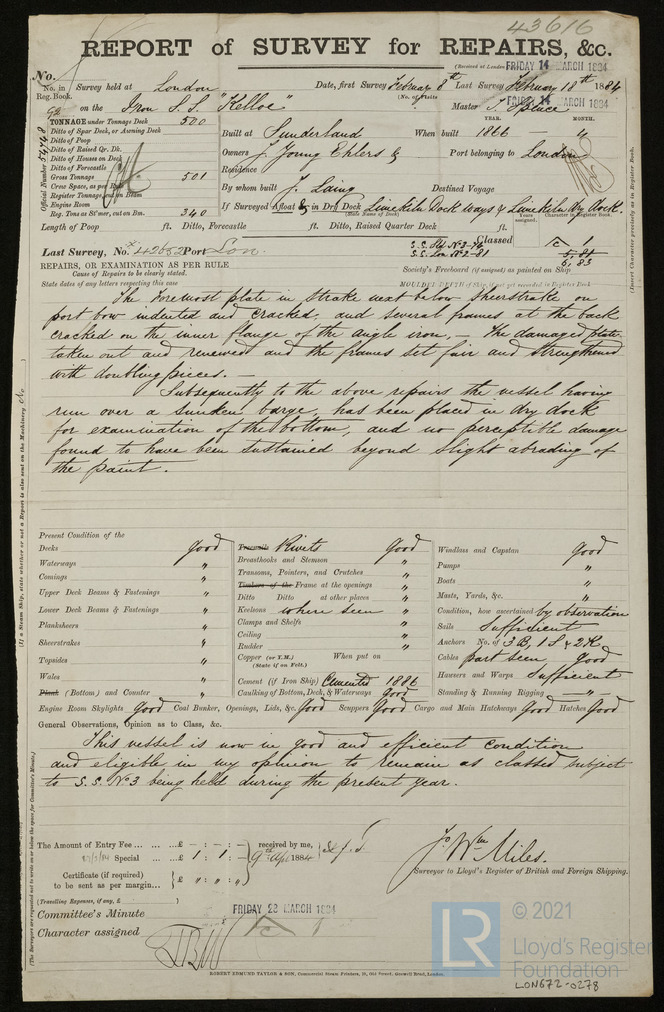 43616
REPORT of SURVEY for REPAIRS, &c.
(Received at London FRIDAY 14 MARCH 1884
No.
No. in Reg. Book. Survey held at London Date, first Survey February 8th Last Survey February 18th 1884
on the Iron S.S. "Kelloe" (No. of Visits ) Master Place
FRIDAY 14 MARCH 1884
TONNAGE under Tonnage Deck 500
YEAR. MONTH.
Ditto of Spar Deck, or Awning Deck
Built at Sunderland When built 1866 — "
Ditto of Poop
Ditto of Raised Qr. Dk.
Owners J. Young Ehlers & Port belonging to London
Ditto of Houses on Deck
Ditto of Forecastle
Residence
Gross Tonnage 501
Crew Space, as per Rule
By whom built J. Laing Destined Voyage
Register Tonnage, cut on Beam
Engine Room
If Surveyed Afloat & in Dry Dock Limekiln Dock ways & Limekiln Dry Dock.
(State Name of Dock)
Reg. Tons as St'mer, cut on Bm. 340
Official Number
Years assigned. Character in Register Book.
Length of Poop ft. Ditto, Forecastle ft. Ditto, Raised Quarter Deck ft.
Last Survey, No. 42052 Port Lon.
S.S. Lon No 2-81
Classed
5,81
6,83
REPAIRS, OR EXAMINATION AS PER RULE
Cause of Repairs to be clearly stated.
State dates of any letters respecting this case
Society's Freeboard (if assigned) as painted on Ship
MOULDED DEPTH of Ship, if not yet recorded in Register Book
(Insert Character precisely as in Register Book.
The foremost plate in strake next below sheerstrake on
port bow indented and cracked, and several frames at the back
cracked on the inner flange of the angle iron. — The damaged plate
taken out and renewed and the frames set fair and strengthened
with doubling pieces. —
Subsequently to the above repairs the vessel having
run over a sunken barge, has been placed in dry dock
for examination of the bottom, and no perceptible damage
found to have been sustained beyond slight abrading of
the paint.
(If a Steam Ship, state whether or not a Report is also sent on the Machinery No
Present Condition of the
Decks good
Waterways "
Comings "
Upper Deck Beams & Fastenings "
Lower Deck Beams & Fastenings "
Planksheers "
Sheerstrakes "
Topsides "
Wales "
Plank (Bottom) and Counter "
Treenails Rivets good
Breasthooks and Stemson "
Transoms, Pointers, and Crutches "
Timbers of the Frame at the openings "
Ditto Ditto at other places "
Keelsons where seen "
Clamps and Shelfs "
Ceiling "
Rudder "
Copper (or Y.M.) When put on
(State if on Felt.)
Cement (if Iron Ship) Cemented 1886
Caulking of Bottom, Deck, & Waterways good
Windlass and Capstan good
Pumps "
Boats "
Masts, Yards, &c. "
Condition, how ascertained by observation
Sails Sufficient
Anchors No. of 3 B, 1 S & 2 K.
Cables part seen good
Hawsers and Warps Sufficient
Standing & Running Rigging — " —
Engine Room Skylights Good Coal Bunker, Openings, Lids, &c. Good Scuppers Good Cargo and Main Hatchways Good Hatches Good
General Observations, Opinion as to Class, &c.
This vessel is now in good and efficient condition
and eligible in my opinion to remain as classed subject
to S.S. No 3 being held during the present year.
The Amount of Entry Fee ... ... ...£ - : - : - received by me,
Special ... ... £ 1 : 1 : - 9th Apr 1884
Certificate (if required) to be sent as per margin... £ " : " : "
(Travelling Expenses, if any, £ )
Wm Miles.
Surveyor to Lloyd's Register of British and Foreign Shipping.
Committee's Minute FRIDAY 28 MARCH 1884
Character assigned
(The Surveyors are requested not to write on or below the space for Committee's Minute.)
ROBERT EDMUND TAYLOR & SON, Commercial Steam Printers, 19, Old Street, Goswell Road, London.
LR
© 2021
Lloyd's Register
Foundation
LON672-0278